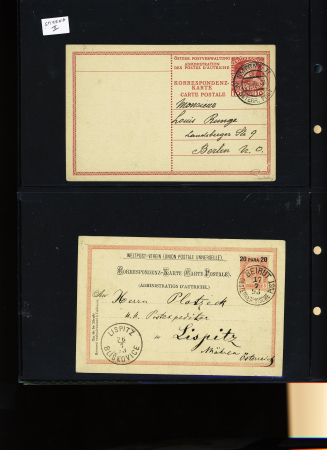 ÖSTERR. POSTVERWALTUNG
ADMINISTRATION
DES POSTES D'AUTRICHE
KORRESPONDENZ-
KARTE
CARTE POSTALE
Monsieur
Louis Runge
Landsberger Str. 9
Berlin N.O.
WELTPOST-VEREIN (UNION POSTALE UNIVERSELLE).
CORRESPONDENZ-KARTE (CARTE POSTALE).
(ADMINISTRATION D'AUTRICHE)
20 PARA 20
BEIRUT
An Herrn Platzek
k.k. Postexpeditor
Lispitz
Mähren Österreich
LISPITZ
BLIŽKOVICE